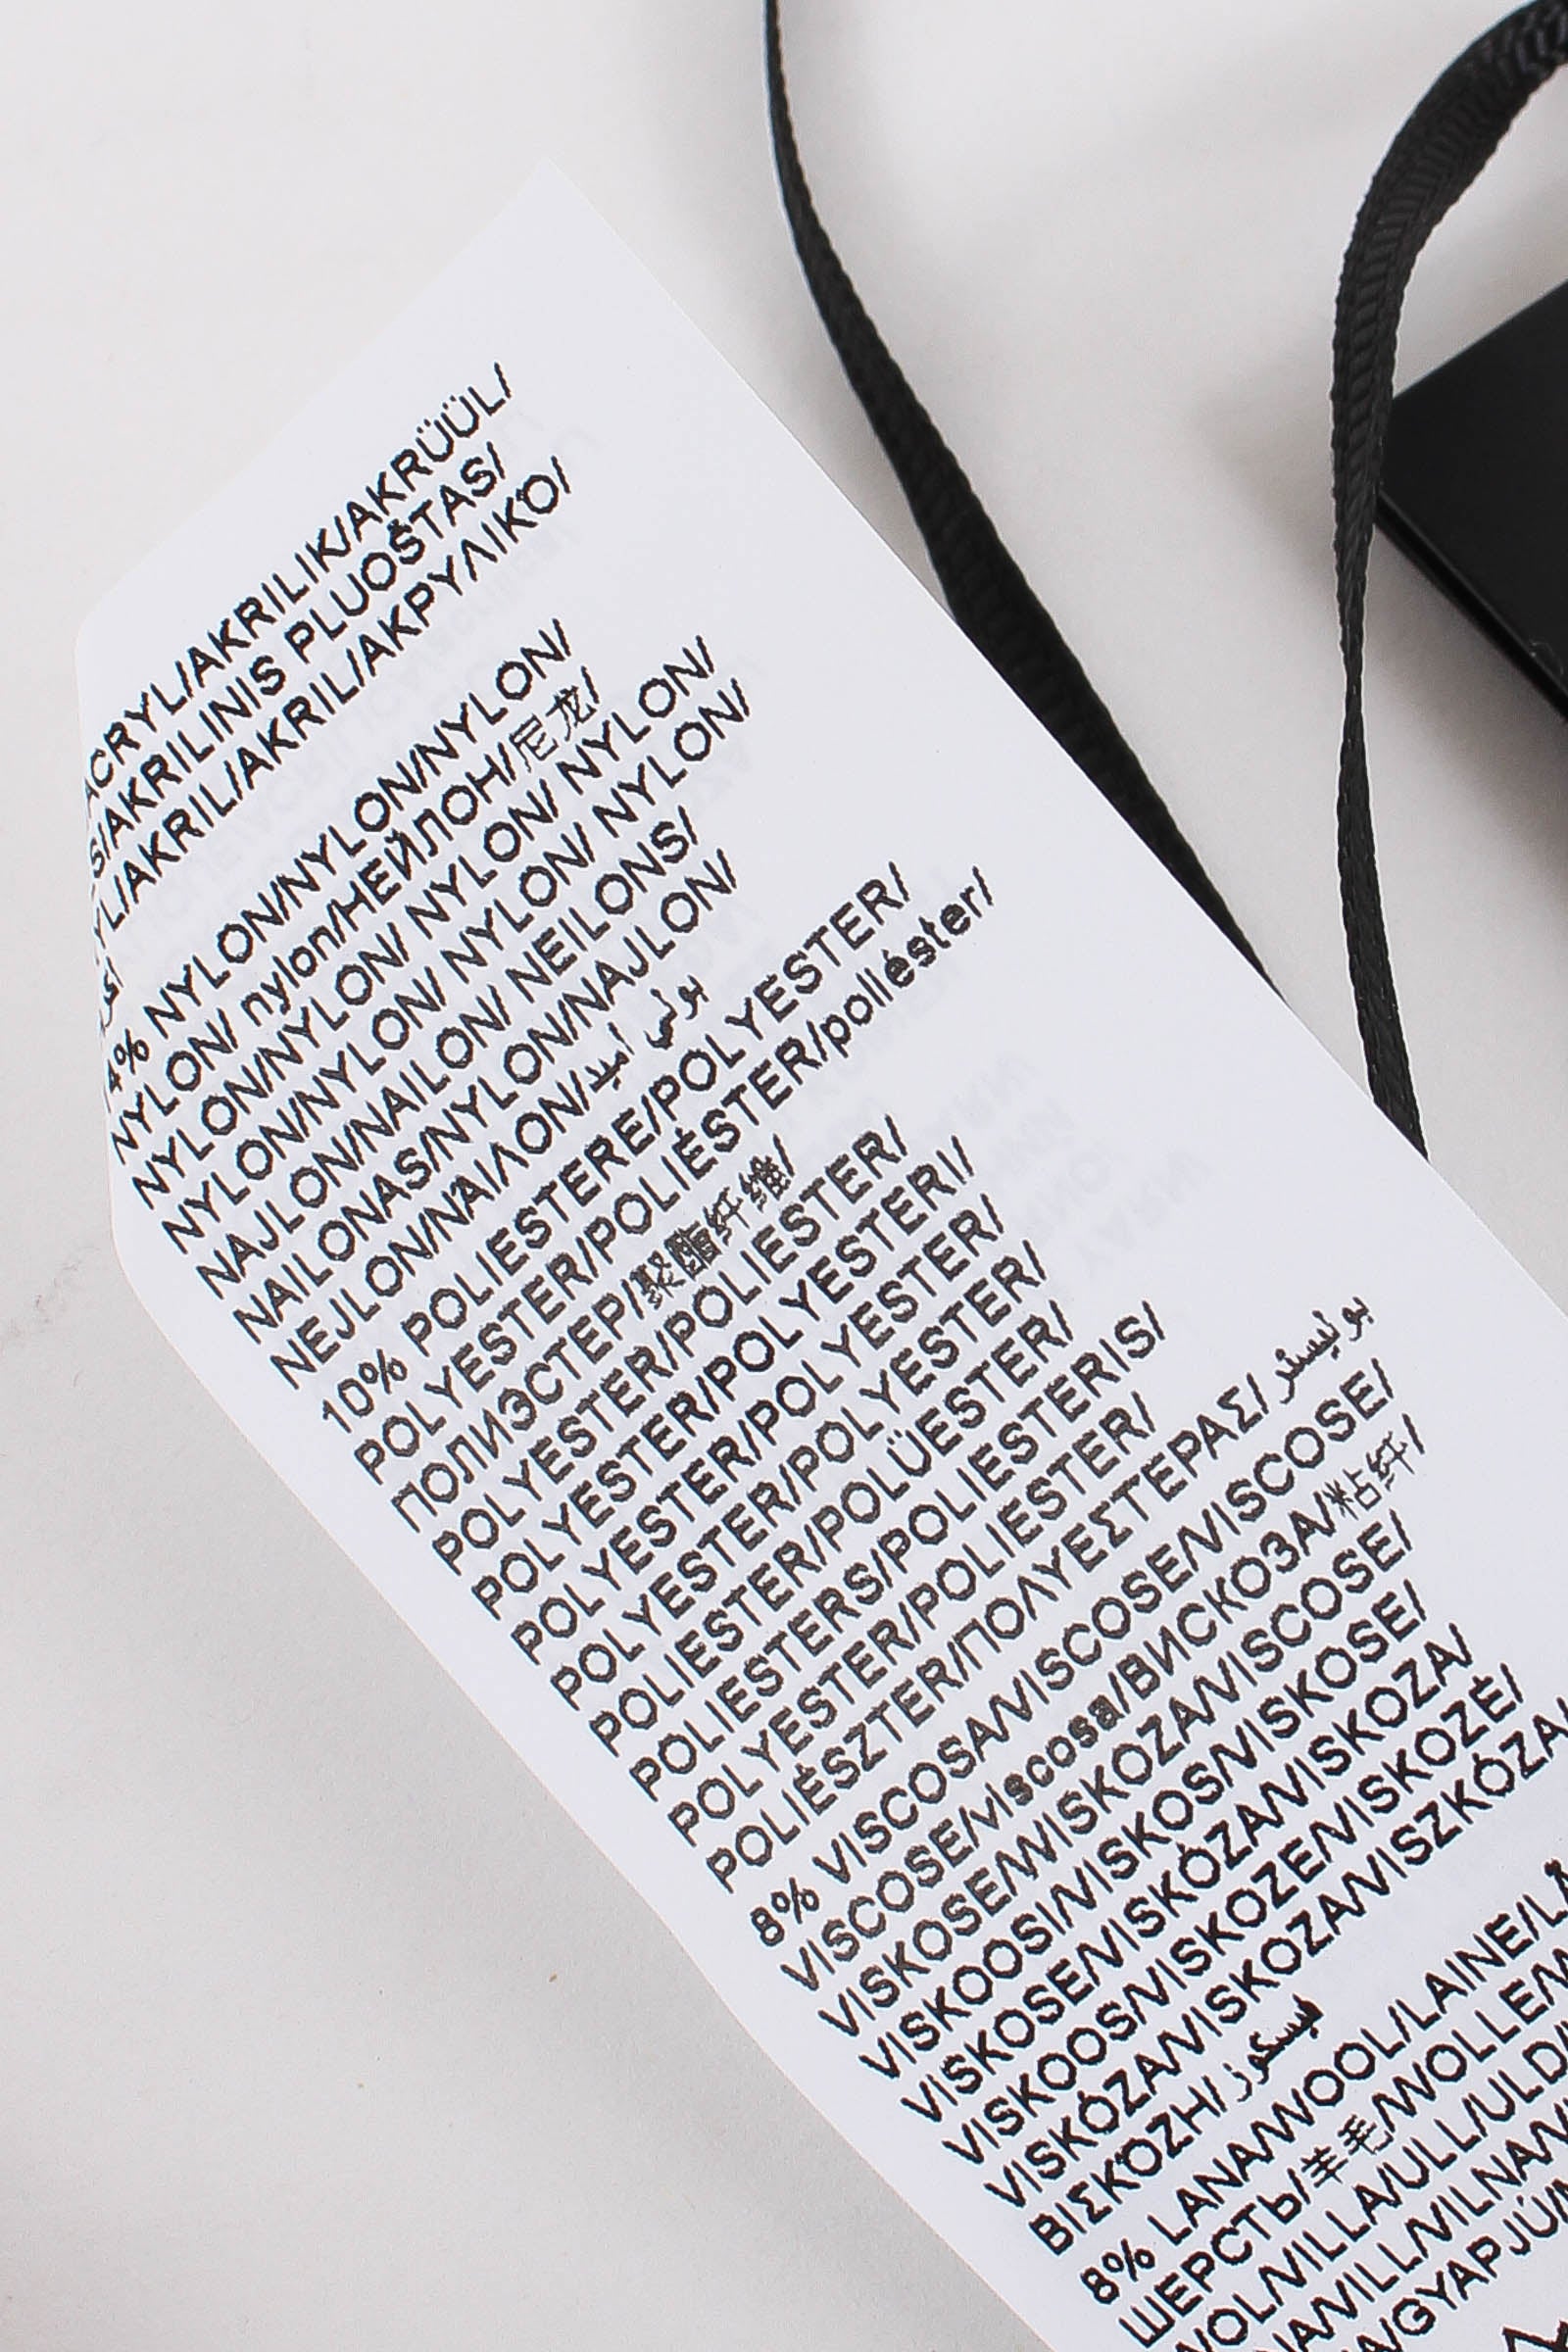 ACRYL/AKRILIK/AKRÜÜL/
S/AKRILINIS PLUOŠTAS/
YL/AKRIL/AKRIL/ΑΚΡΥΛΙΚΌ/
4% NYLON/NYLON/NYLON/NYLON/
NYLON/ nylon/НЕЙЛОН/尼龙/
NYLON/NYLON/ NYLON/ NYLON/
NYLON/NYLON/ NYLON/ NYLON/
NAJLON/NAILON/ NEILONS/
NAILONAS/NYLON/NAJLON/
NEJLON/ΝΆΙΛΟΝ/بولي اميد
10% POLIESTERE/POLYESTER/
POLYESTER/POLIÉSTER/poliéster/
ПОЛИЭСТЕР/聚酯纤维/
POLYESTER/POLIESTER/
POLYESTER/POLYESTERI/
POLYESTER/POLYESTER/
POLYESTER/POLYESTER/
POLIESTER/POLÜESTER/
POLIESTERS/POLIESTERIS/
POLYESTER/POLIESTER/
POLIÉSZTER/ΠΟΛΥΕΣΤΕΡΑΣ/بوليستر
8% VISCOSA/VISCOSE/VISCOSE/
VISCOSE/viscosa/ВИСКОЗА/粘纤/
VISKOSE/WISKOZA/VISCOSE/
VISKOOSI/VISKOS/VISKOSE/
VISKOSE/VISKÓZA/VISKOZA/
VISKOOS/VISKOZE/VISKOZĖ/
VISKÓZA/VISKOZA/VISZKÓZA
ΒΙΣΚΌΖΗ/فيسكوز
8% LANA/WOOL/LAINE/LÃ
ШЕРСТЬ/羊毛/WOLLE/
WOL/VILLA/ULL/ULD/
VILL/VILNA/
/GYAPJÚ/